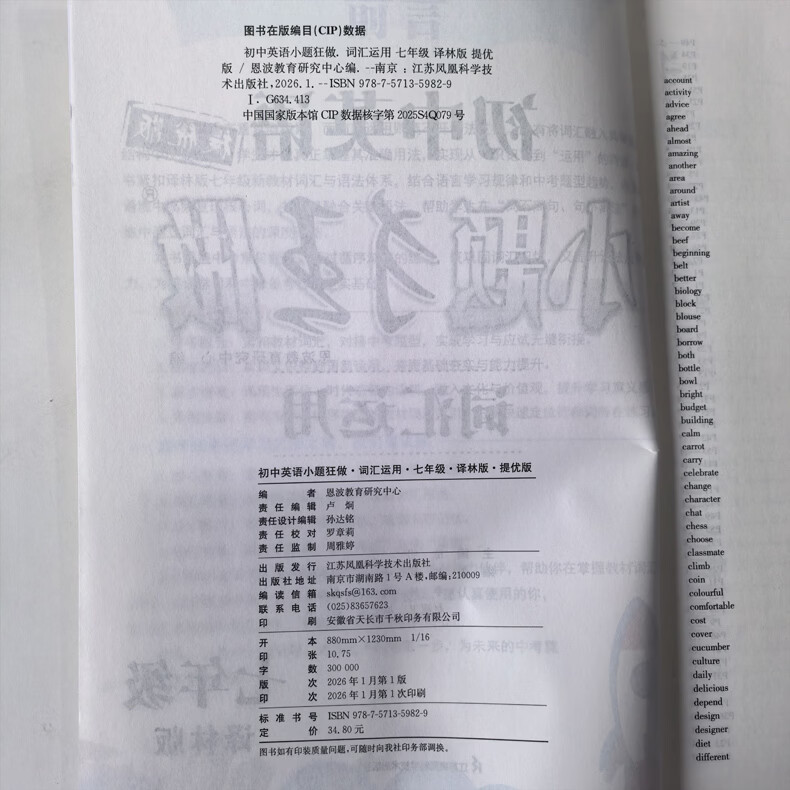 图书在版编目(CIP)数据
初中英语小题狂做. 词汇运用 七年级 译林版 提优
版 / 恩波教育研究中心编. --南京 : 江苏凤凰科学技
术出版社, 2026. 1. --ISBN 978-7-5713-5982-9
Ⅰ. G634.413
中国国家版本馆 CIP 数据核字第 2025S4Q079 号
初中英语小题狂做·词汇运用·七年级·译林版·提优版
编 者 恩波教育研究中心
责任编辑 卢 炯
责任设计编辑 孙达铭
责任校对 罗章莉
责任监制 周雅婷
出版发行 江苏凤凰科学技术出版社
出版社地址 南京市湖南路1号A楼,邮编:210009
编读信箱 skqsfs@163.com
联系电话 (025)83657623
印 刷 安徽省天长市千秋印务有限公司
开 本 880mm×1230mm 1/16
印 张 10.75
字 数 300 000
版 次 2026年1月第1版
印 次 2026年1月第1次印刷
标准书号 ISBN 978-7-5713-5982-9
定 价 34.80元
图书如有印装质量问题,可随时向我社印务部调换。
account
activity
advice
agree
ahead
almost
amazing
another
area
around
artist
away
become
beef
beginning
belt
better
biology
block
blouse
board
borrow
both
bottle
bowl
bright
budget
building
calm
carrot
carry
celebrate
change
character
chat
chess
choose
classmate
climb
coin
colourful
comfortable
cost
cover
cucumber
culture
daily
delicious
depend
design
designer
diet
different